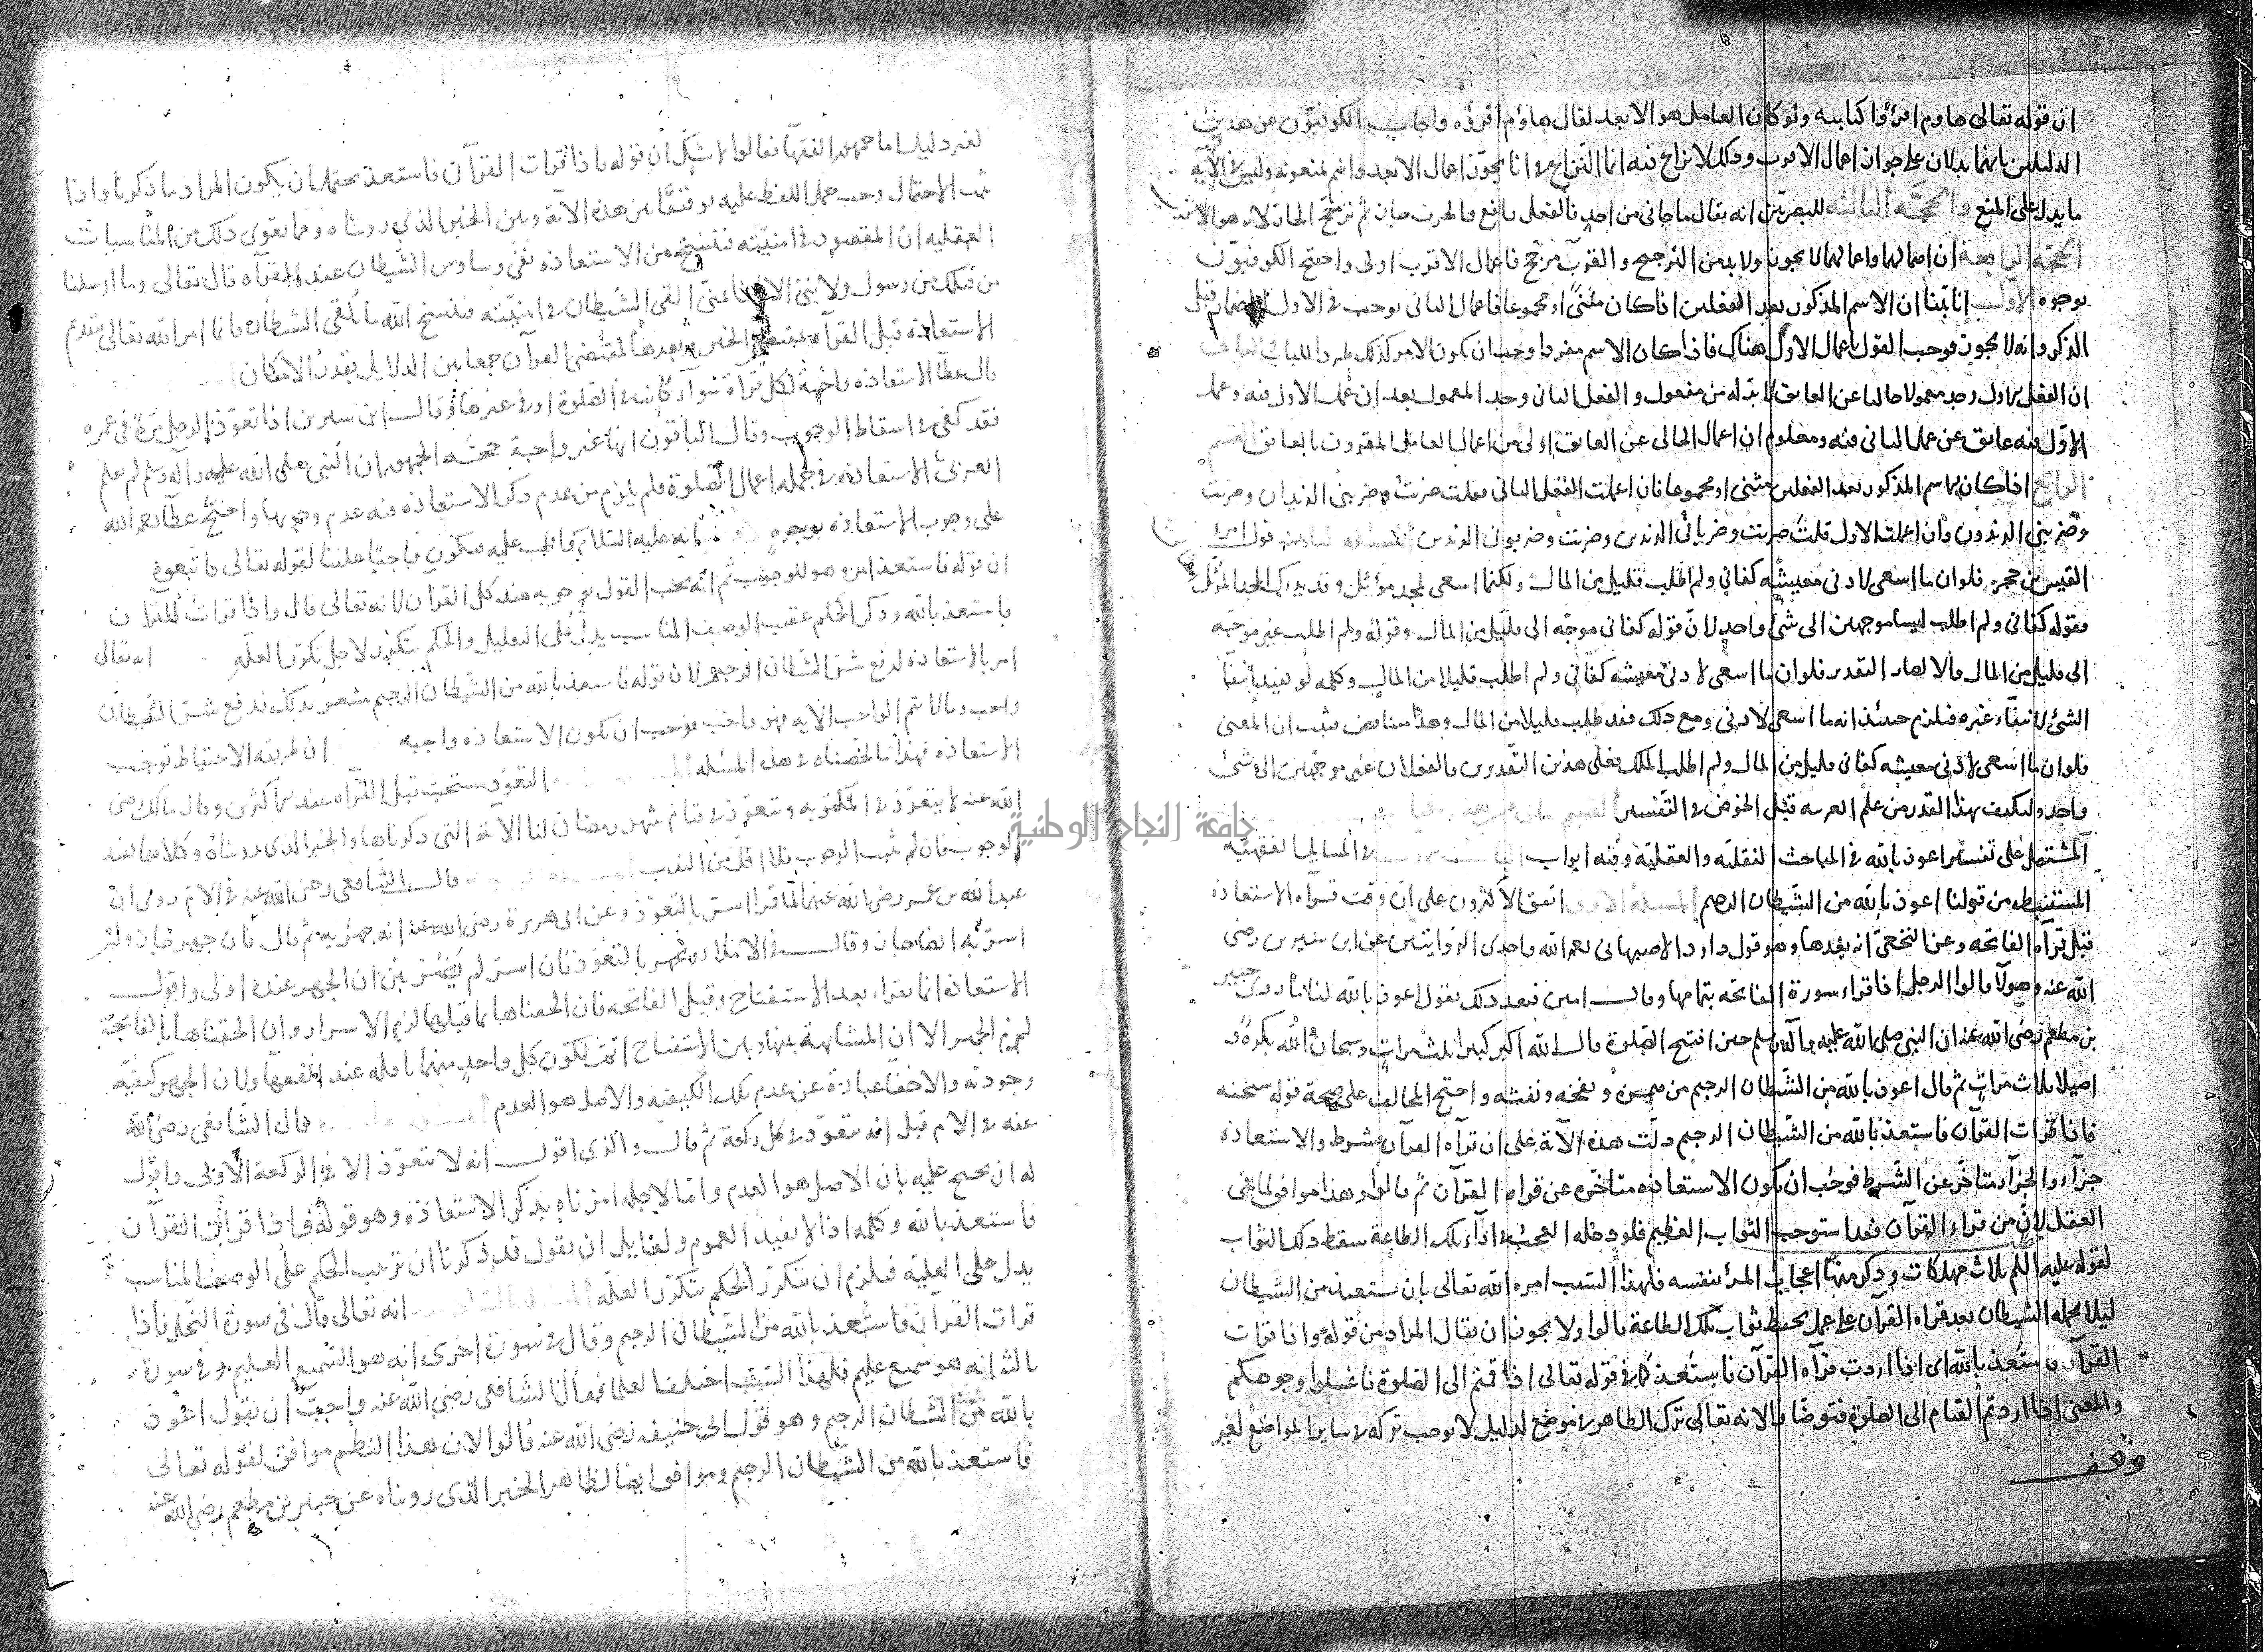 ان قوله تعالى هاوم اقرؤا كتابيه ولو كان العامل هو الابعد لقال هاؤم اقرؤه واجاب الكوفيون عن هذين
الدليلين بانهما يدلان على جواز اعمال الاقرب وذلك لا نزاع فيه انما النزاع في انا نجوز اعمال الابعد وانتم تمنعونه وليس في الآية
ما يدل على المنع والحجة الثالثة للبصريين انه يقال ما جاني من احد فالفعل رافع والحرف جار ثم ترجح الجار لانه هو الاقرب
الحجة الرابعة ان اهمالهما واعمالهما لا يجوز ولا بد من الترجيح والقرب مرجح فاعمال الاقرب اولى واحتج الكوفيون
بوجوه الاول انا بينا ان الاسم المذكور بعد الفعلين اذا كان مثنى او مجموعا فاعمال الثاني يوجب في الاول الاضمار قبل
الذكر وانه لا يجوز فوجب القول باعمال الاول هناك فاذا كان الاسم مفردا وجب ان يكون الامر كذلك طردا للباب والثاني
ان الفعل الاول وجد معمولا خاليا عن العايق لا بد له من مفعول والفعل الثاني وجد المعمول بعد ان عمل الاول فيه وعمل
الاول فيه عايق عن عمل الثاني فيه ومعلوم ان اعمال الخالي عن العايق اولى من اعمال العامل المقرون بالعايق القسم
الرابع اذا كان الاسم المذكور بعد الفعلين مثنى او مجموعا فان اعملت الفعل الثاني قلت ضربت وضربني الزيدان وضربت
وضربني الزيدون وان اعملت الاول قلت ضربت وضرباني الزيدين وضربت وضربوني الزيدين قول امرئ
القيس بن حجر فلو ان ما اسعى لادنى معيشة كفاني ولم اطلب قليل من المال ولكنما اسعى لمجد مؤثل وقد يدرك المجد المؤثل
فقوله كفاني ولم اطلب ليسا موجهين الى شئ واحد لان قوله كفاني موجه الى قليل من المال وقوله ولم اطلب غير موجه
الى قليل من المال والا لصار التقدير فلو ان ما اسعى لادنى معيشة كفاني ولم اطلب قليلا من المال وكلمه لو تفيد انتفا
الشئ لانتفاء غيره فيلزم حينئذ انه ما اسعى لادنى ومع ذلك فقد طلب قليلا من المال وهذا متناقض فثبت ان المعنى
فلو ان ما اسعى لادنى معيشة كفاني قليل من المال ولم اطلب الملك فعلى هذين التقديرين فالفعلان غير موجهين الى شئ
واحد وليكتف بهذا القدر من علم العربيه قبل الخوض في التفسير
المشتمل على تفسير اعوذ بالله في المباحث النقلية والعقلية وفيه ابواب في المسايل الفقهية
المستنبطه من قولنا اعوذ بالله من الشيطان الرجيم المسئلة الاولى اتفق الاكثرون على ان وقت قراءه الاستعاذة
قبل قرآه الفاتحه وعن النخعي انه بعدها وهو قول داود الاصبهاني رحمه الله واحدى الروايتين عن ابن سيرين رضى
الله عنه وهولا قالوا الرجل اذا قراء سورة الفاتحه بتمامها وقال امين فبعد ذلك يقول اعوذ بالله لنا ما روى جبير
بن مطعم رضى الله عنه ان النبى صلى الله عليه وآله وسلم حين افتتح الصلوة قال الله اكبر كبيرا ثلث مرات وسبحان الله بكرة و
اصيلا ثلاث مرات ثم قال اعوذ بالله من الشيطان الرجيم من همزه ونفخه ونفثه واحتج المخالف على صحة قوله سبحنه
فاذا قرات القرآن فاستعذ بالله من الشيطان الرجيم دلت هذه الآية على ان قرآه القرآن شرط والاستعاذة
جزآء والجزآء متاخر عن الشرط فوجب ان يكون الاستعاذه متاخره عن قراه القرآن ثم قالوا وهذا موافق لما في
العقل لان من قراء القرآن فقد استوجب الثواب العظيم فلو دخله العجب في اداء تلك الطاعة سقط ذلك الثواب
لقوله عليه السلم ثلاث مهلكات وذكر منها اعجاب المرء بنفسه فلهذا السبب امره الله تعالى بان يستعيذ من الشيطان
ليلا يحمله الشيطان بعد قراه القرآن على عمل يحبط ثواب تلك الطاعة قالوا ولا يجوز ان يقال المراد من قوله واذا قرات
القرآن فاستعذ بالله اى اذا اردت قرآه القرآن فاستعذ كما في قوله تعالى اذا قمتم الى الصلوة فاغسلوا وجوهكم
والمعنى اذا اردتم القيام الى الصلوة فتوضا والا نه تعالى ترك الظاهر في موضع لدليل لا يوجب تركه في ساير المواضع لغير
وقف
لغير دليل اما جمهور الفقهآ فقالوا لا شك ان قوله فاذا قرات القرآن فاستعذ يحتمل ان يكون المراد ما ذكرنا واذا
ثبت الاحتمال وجب حمل اللفظ عليه توفيقا بين هذه الآية وبين الخبر الذي رويناه ومما يقوى ذلك من المناسبات
العقليه ان المقصود من الاستعاذه نفى وساوس الشيطان عند القرآه قال تعالى وما ارسلنا
من قبلك من رسول ولا نبي الا اذا تمنى القى الشيطان في امنيته فينسخ الله ما يلقى الشيطان فانما امر الله تعالى بتقديم
الاستعاذة قبل القرآه بمقتضى الخبر وبعدها بمقتضى القرآن جمعا بين الدلايل بقدر الامكان
قال عطا الاستعاذه واجبة لكل قرآة سوآء كانت في الصلوة او في غيرها وقال ابن سيرين اذا تعوذ الرجل مرة في عمره
فقد كفى في اسقاط الوجوب وقال الباقون انها غير واجبة حجة الجمهور ان النبى صلى الله عليه وآله وسلم لم يعلم
الاعرابى الاستعاذه في جمله اعمال الصلوة فلم يلزم من عدم ذكر الاستعاذه فيه عدم وجوبها واحتج عطا رحمه الله
على وجوب الاستعاذه بوجوه انه عليه السلام واظب عليه فيكون واجبا علينا لقوله تعالى فاتبعوه
ان قوله فاستعذ امر وهو للوجوب ثم انه يجب القول بوجوبه عند كل القرآن لانه تعالى قال واذا قرات القرآن
فاستعذ بالله وذكر الحكم عقيب الوصف المناسب يدل على التعليل والحكم يتكرر لاجل تكرر العلة انه تعالى
امر بالاستعاذه لدفع شر الشيطان الرجيم لان قوله فاستعذ بالله من الشيطان الرجيم مشعر بذلك فدفع شر الشيطان
واجب وما لا يتم الواجب الا به فهو واجب فوجب ان تكون الاستعاذه واجبه ان طريقه الاحتياط توجب
الاستعاذه فهذا ما لخصناه في هذه المسئله التعوذ مستحب قبل القرآه عند الاكثرين وقال مالك رضى
الله عنه لا يتعوذ في المكتوبه ويتعوذ في قيام شهر رمضان لنا الآية التى ذكرناها والخبر الذى رويناه وكلاهما يفيد
الوجوب فان لم يثبت الوجوب فلا اقل من الندب قال الشافعى رضى الله عنه في الام روى ان
عبد الله بن عمر رضى الله عنهما لما قرا اسر بالتعوذ وعن ابى هريرة رضى الله عنه انه جهر به ثم قال فان جهر جاز وان
اسر به ايضا جاز وقال في الاملاء ويجهر بالتعوذ فان اسر لم يضر بين ان الجهر عنده اولى واقول
الاستعاذة انما تقراء بعد الاستفتاح وقبل الفاتحه فان الحقناها بما قبلها لزم الاسرار وان الحقناها بالفاتحة
لزم الجهر الا ان المشابهة بينها وبين الاستفتاح اتم لكون كل واحد منهما نافله عند الفقهآ ولان الجهر كيفية
وجودية والاخفآ عبارة عن عدم تلك الكيفيه والاصل هو العدم قال الشافعى رضى الله
عنه في الام قيل انه يتعوذ في كل ركعة ثم قال والذى اقول انه لا يتعوذ الا في الركعة الاولى واقول
له ان يحتج عليه بان الاصل هو العدم وما لاجله امرناه بذكر الاستعاذة وهو قوله فاذا قرات القرآن
فاستعذ بالله وكلمه اذا لا تفيد العموم ولقايل ان يقول قد ذكرنا ان ترتب الحكم على الوصف المناسب
يدل على العلية فيلزم ان يتكرر الحكم بتكرر العلة انه تعالى قال في سورة النحل فاذا
قرات القرآن فاستعذ بالله من الشيطان الرجيم وقال في سورة اخرى انه هو السميع العليم وفي سورة
ثالثة انه هو سميع عليم فلهذا السبب اختلف العلما فقال الشافعى رضى الله عنه واجب ان يقول اعوذ
بالله من الشيطان الرجيم وهو قول ابى حنيفه رضى الله عنه قالوا لان هذا النظم موافق لقوله تعالى
فاستعذ بالله من الشيطان الرجيم وموافق ايضا لظاهر الخبر الذى رويناه عن جبير بن مطعم رضى الله عنه
جامعة النجاح الوطنية